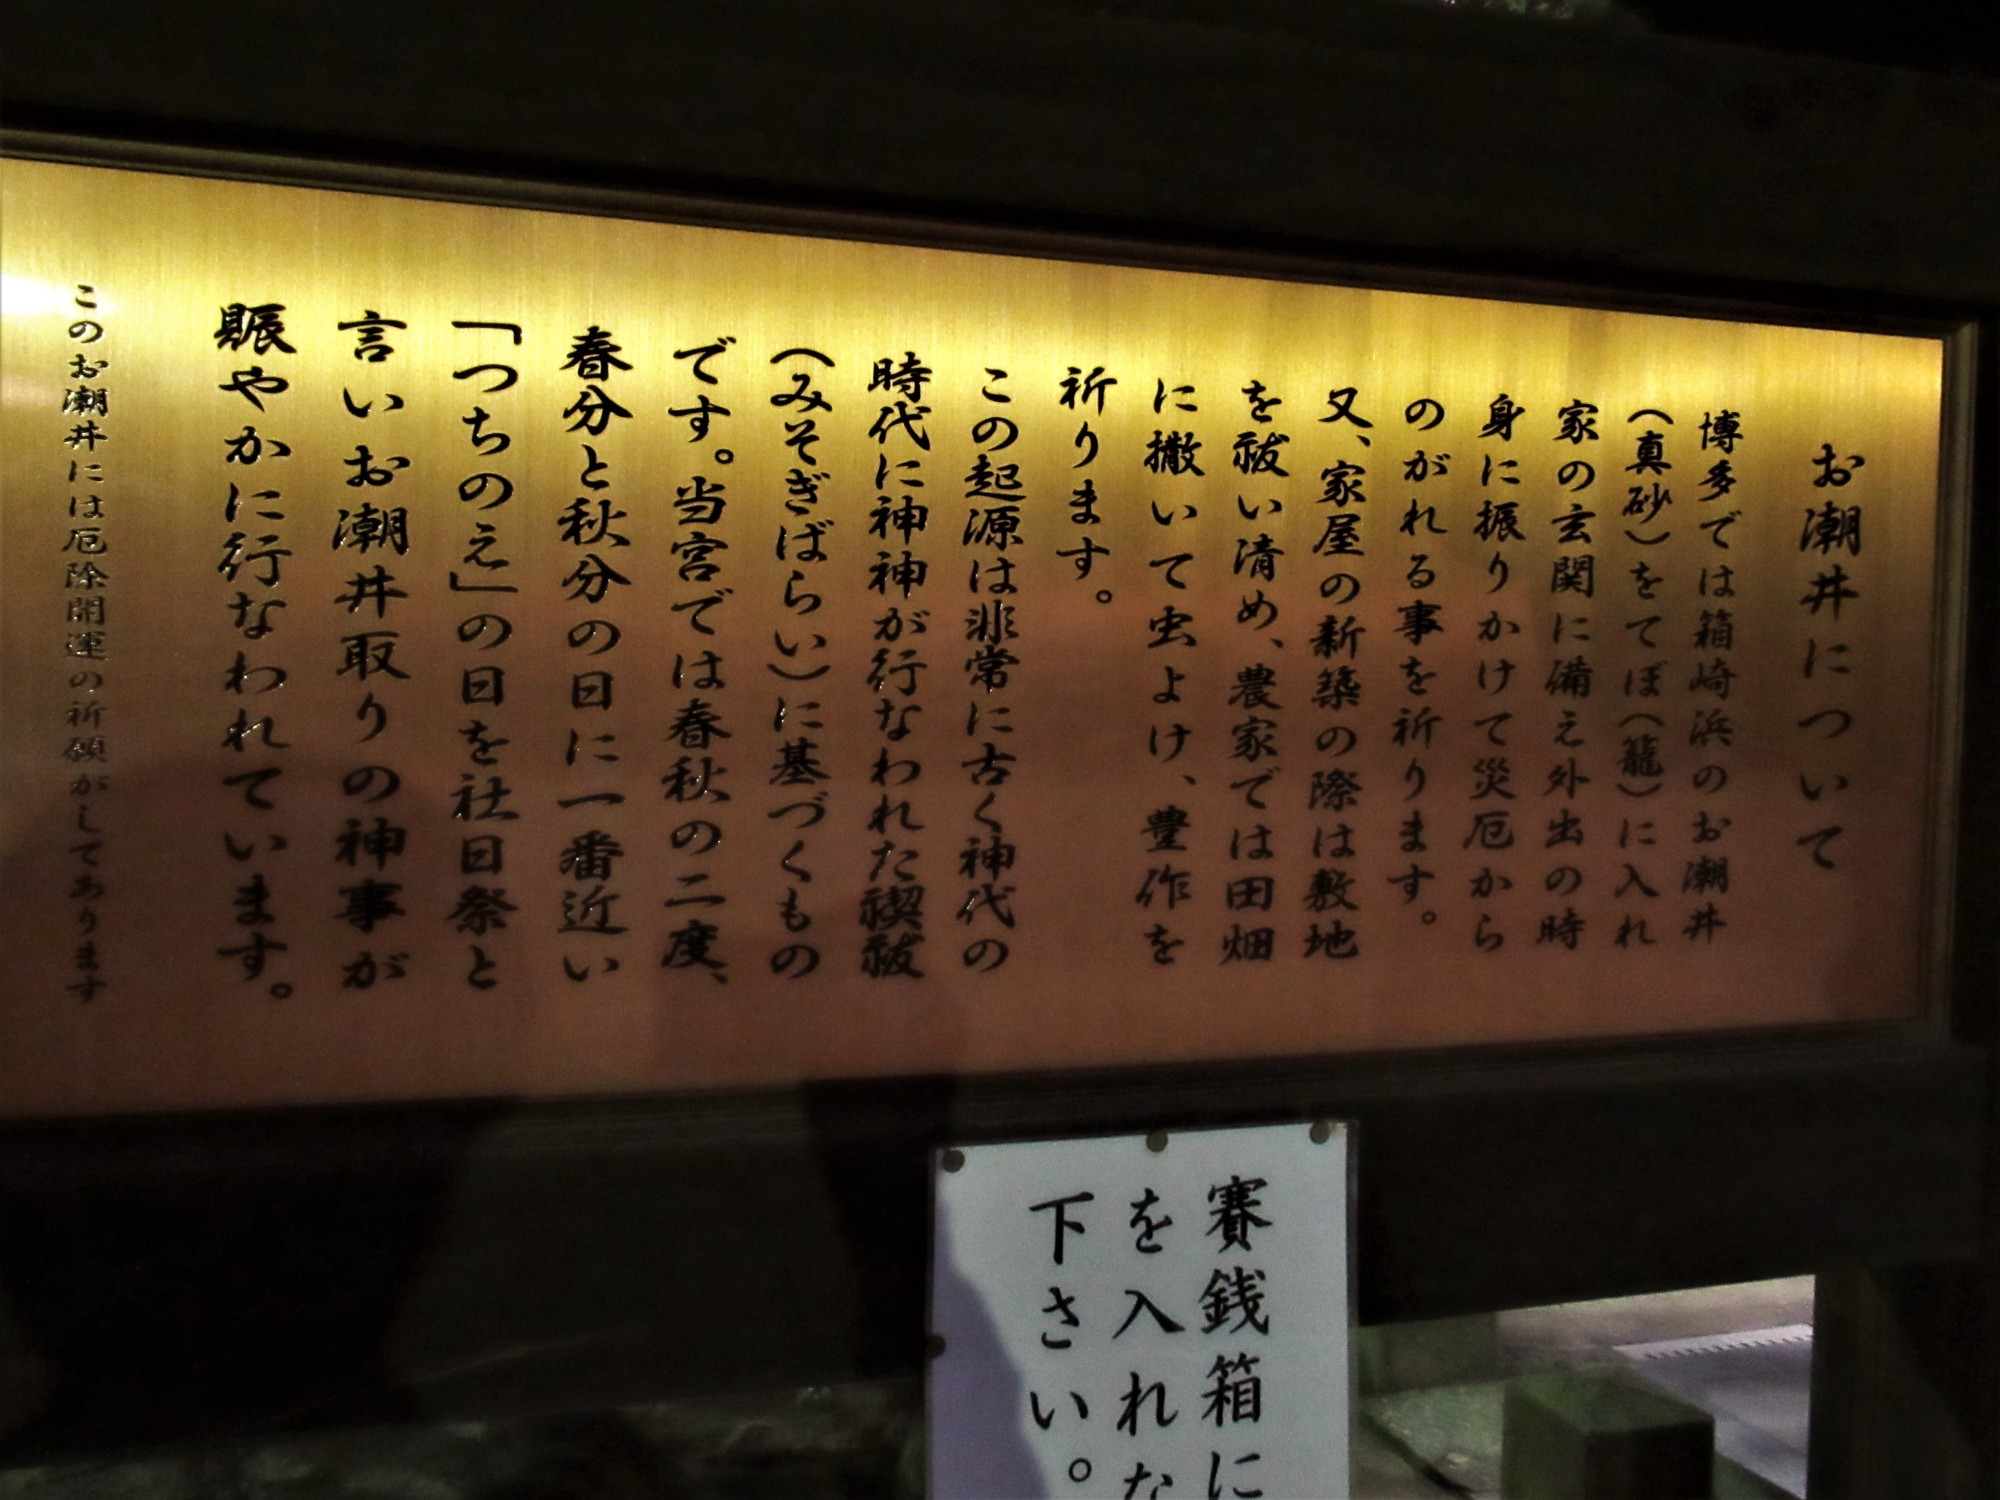 お潮井について
博多では箱崎浜のお潮井
（真砂）をてぼ（籠）に入れ
家の玄関に備え外出の時
身に振りかけて災厄から
のがれる事を祈ります。
又、家屋の新築の際は敷地
を祓い清め、農家では田畑
に撒いて虫よけ、豊作を
祈ります。
この起源は非常に古く神代の
時代に神神が行なわれた禊祓
（みそぎばらい）に基づくもの
です。当宮では春秋の二度、
春分と秋分の日に一番近い
「つちのえ」の日を社日祭と
言いお潮井取りの神事が
賑やかに行なわれています。
このお潮井には厄除開運の祈願がしてあります
賽銭箱に
を入れな
下さい。